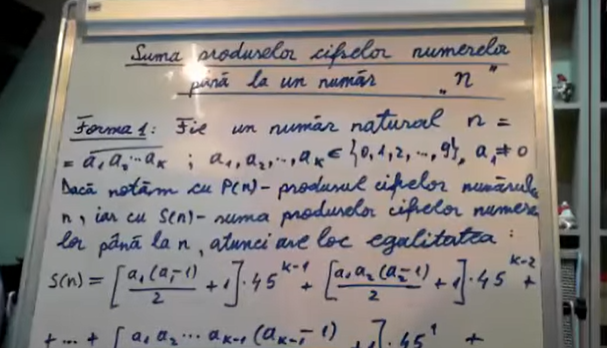 Suma produselor cifrelor numerelor
până la un număr „n"
Forma 1: Fie un număr natural n =
= a₁a₂...aₖ ; a₁, a₂, ..., aₖ ∈ {0, 1, 2, ..., 9}, a₁ ≠ 0
Dacă notăm cu P(n) - produsul cifrelor numărului
n, iar cu S(n) - suma produselor cifrelor numere
lor până la n, atunci are loc egalitatea :
S(n) = [a₁(a₁-1)/2 + 1]·45^(k-1) + [a₁a₂(a₂-1)/2 + 1]·45^(k-2) +
+ ... + [a₁a₂...aₖ₋₁(aₖ₋₁-1) + 1]·45¹ +